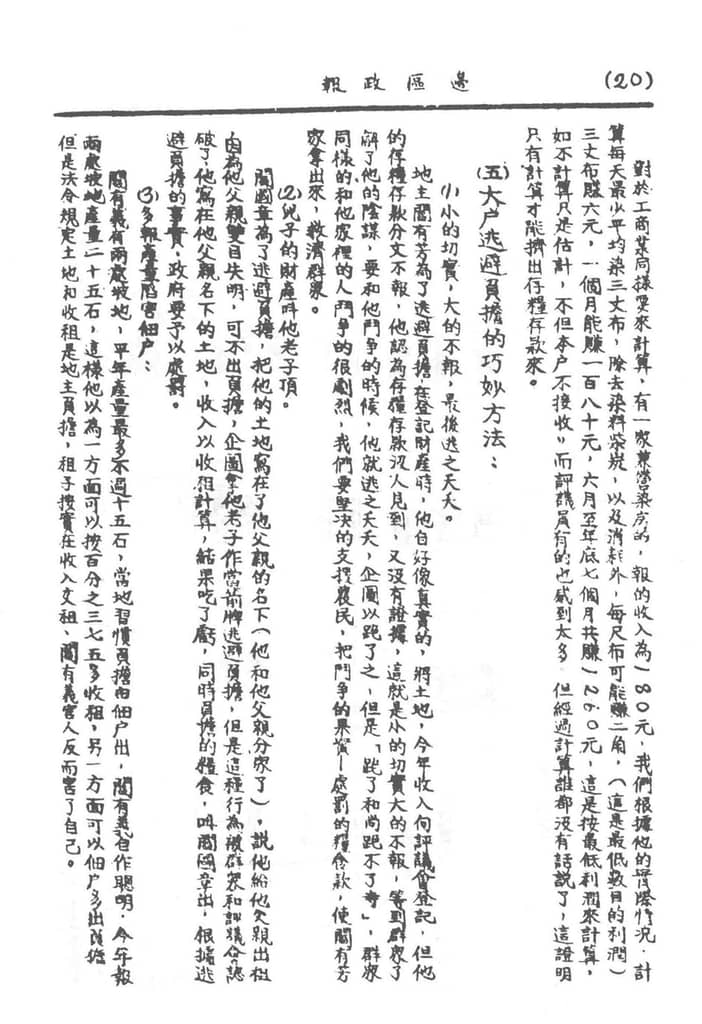 (20)
邊區政報
對於工商業同樣要來計算，有一家兼營染房的，報的收入為180元，我們根據他的實際情況，計
算每天最少平均染三丈布，除去染料柴炭，以及消耗外，每尺布可能賺二角，（這是最低數目的利潤）
三丈布賺六元，一個月能賺一百八十元，六月至年底七個月共賺1260元，這是按最低利潤來計算，
如不計算只是估計，不但本户不接收，而評議員有的也感到太多，但經過計算誰都沒有話説了，這證明
只有計算才能擠出存糧存款來。
(五)大户逃避負擔的巧妙方法：
(1)小的切實，大的不報，最後逃之夭夭。
地主閻有芳為了逃避負擔，在登記財產時，他自好像真實的，將土地，今年收入向評議會登記，但他
的存糧存款分文不報，他認為存糧存款沒人見到，又沒有證據，這就是小的切實大的不報，等到群眾了
解了他的陰謀，要和他鬥爭的時候，他就逃之夭夭，企圖以跑了之，但是「跑了和尚跑不了寺」，群眾
同樣的和他家裡的人鬥爭的很劇烈，我們要堅決的支援農民，把鬥爭的果實—處罰的糧食款，使閻有芳
家拿出來，救濟群眾。
(2)兒子的財產叫他老子頂。
閻國章為了逃避負擔，把他的土地寫在了他父親的名下（他和他父親分家了），説他給他父親出租
因為他父親雙目失明，可不出負擔，企圖拿他老子作當箭牌逃避負擔，但是這種行為被群眾和評議會認
破了，他寫在他父親名下的土地，收入以收租計算，結果吃了虧，同時負擔的糧食，叫閻國章出，根據逃
避負擔的事實，政府要予以處罰。
(3)多報產量陷害佃户：
閻有義有兩處坡地，平年產量最多不過十五石，當地習慣負擔由佃户出，閻有義自作聰明，今年報
兩處坡地產量二十五石，這樣他以為一方面可以按百分之三七五多收租，另一方面可以佃户多出負擔
但是法令規定土地和收租是地主負擔，租子按實在收入交租，閻有義害人反而害了自己。